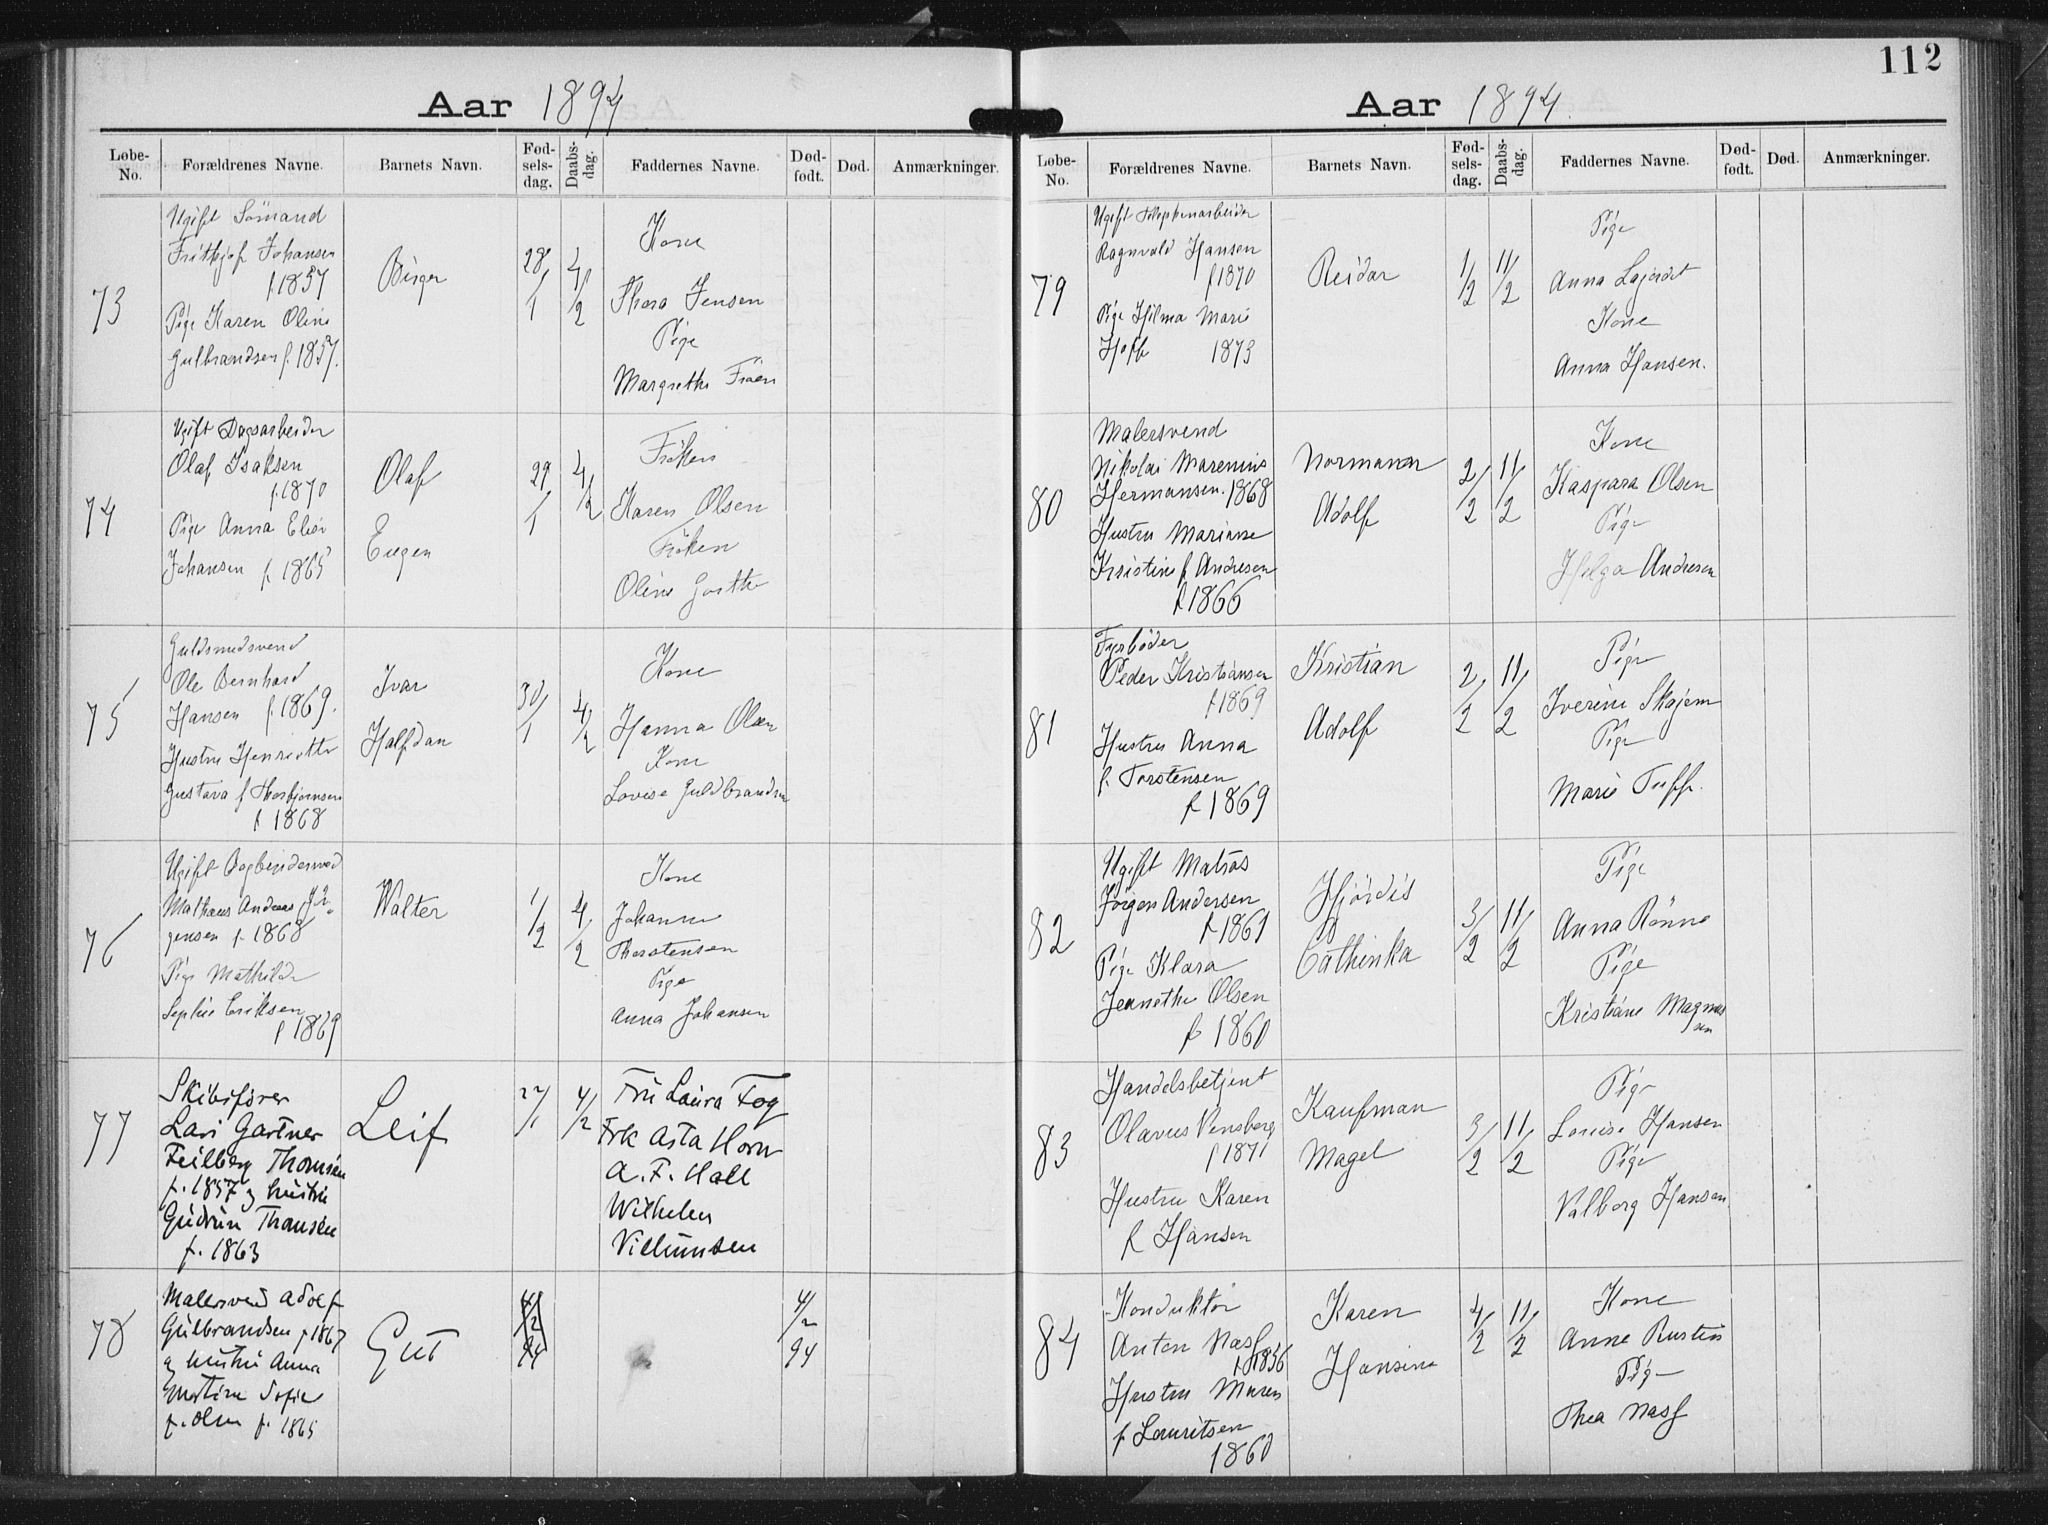 112
Aar 1894
Løbe-No. Forældrenes Navne. Barnets Navn. Fødselsdag. Daabsdag. Faddernes Navne. Dødfødt. Død. Anmærkninger.
73
Ugift Sömand
Frithjof Johansen
f 1857
Pige Karen Oline
Gulbrandsen f. 1857.
Birger
28/1
4/2
Kone
Thora Jensen
Pige
Margrethe
74
Ugift Dagsarbeider
Olaf Isaksen
f. 1870
Pige Anna
Johansen f. 1865
Olaf
Eugen
29/1
4/2
Fröken
Karen Olsen
Fröken
Oline
75
Guldsmedsvend
Ole Bernhard
Hansen f. 1869.
Hustru Henriette
Gustava f Thorbjörnsen
f 1868
Ivar
Halfdan
30/1
4/2
Kone
Hanna Olsen
Kone
Lovise Guldbrandsen
76
Ugift Bogbindersvend
Mathæus Andreas Jör-
gensen f. 1868
Pige Mathilde
Sophie Eriksen
f 1869
Walter
1/2
4/2
Kone
Johanne
Thorstensen
Pige
Anna Johansen
77
Skibsfører
Lars Gartner
Feilberg Thomsen
f. 1857 og hustru
Gudrun Thomsen
f. 1863
Leif
27/1
4/2
Fru Laura Fog
Frk Asta Horn
A. F. Hall
Wilhelm
Villumsen
78
Malersvend Adolf
Gulbrandsen f 1867
og hustru Anna
Martine Sofie
f. Olsen f. 1865
Gut
4/2
94
4/2
94
Aar 1894.
Løbe-No. Forældrenes Navne. Barnets Navn. Fødselsdag. Daabsdag. Faddernes Navne. Dødfødt. Død. Anmærkninger.
79
Ugift
Ragnvald Hansen
f 1870
Pige Hilma Marie
Hoff 1873
Reidar
1/2
11/2
Pige
Anna
Kone
Anna Hansen.
80
Malersvend
Nikolai Marenius
Hermansen. 1868
Hustru Marianne
Kristine f Andresen
f 1866
Normann
Adolf
2/2
11/2
Kone
Kaspara Olsen
Pige
Helga Andresen
81
Fyrbøder
Peder Kristiansen
f 1869
Hustru Anna
f. Torstensen
f 1869
Kristian
Adolf
2/2
11/2
Pige
Iverine Skajem
Pige
Marie
82
Ugift Matros
Jörgen Andersen
f 1869
Pige Klara
Jeanette Olsen
f 1860
Hjördis
Cathinka
3/2
11/2
Pige
Anna Rönne
Pige
Kristiane Magnus
sen
83
Handelsbetjent
Olavus Vensberg
f 1871
Hustru Karen
f Hansen
Kaufman
Magel
3/2
11/2
Pige
Louise Hansen
Pige
Valborg Hansen
84
Konduktör
Anton Næss
f 1856
Hustru Maren
f Lauritsen
1860
Karen
Hansine
4/2
11/2
Kone
Anne Rustin
Pige
Thea Næss